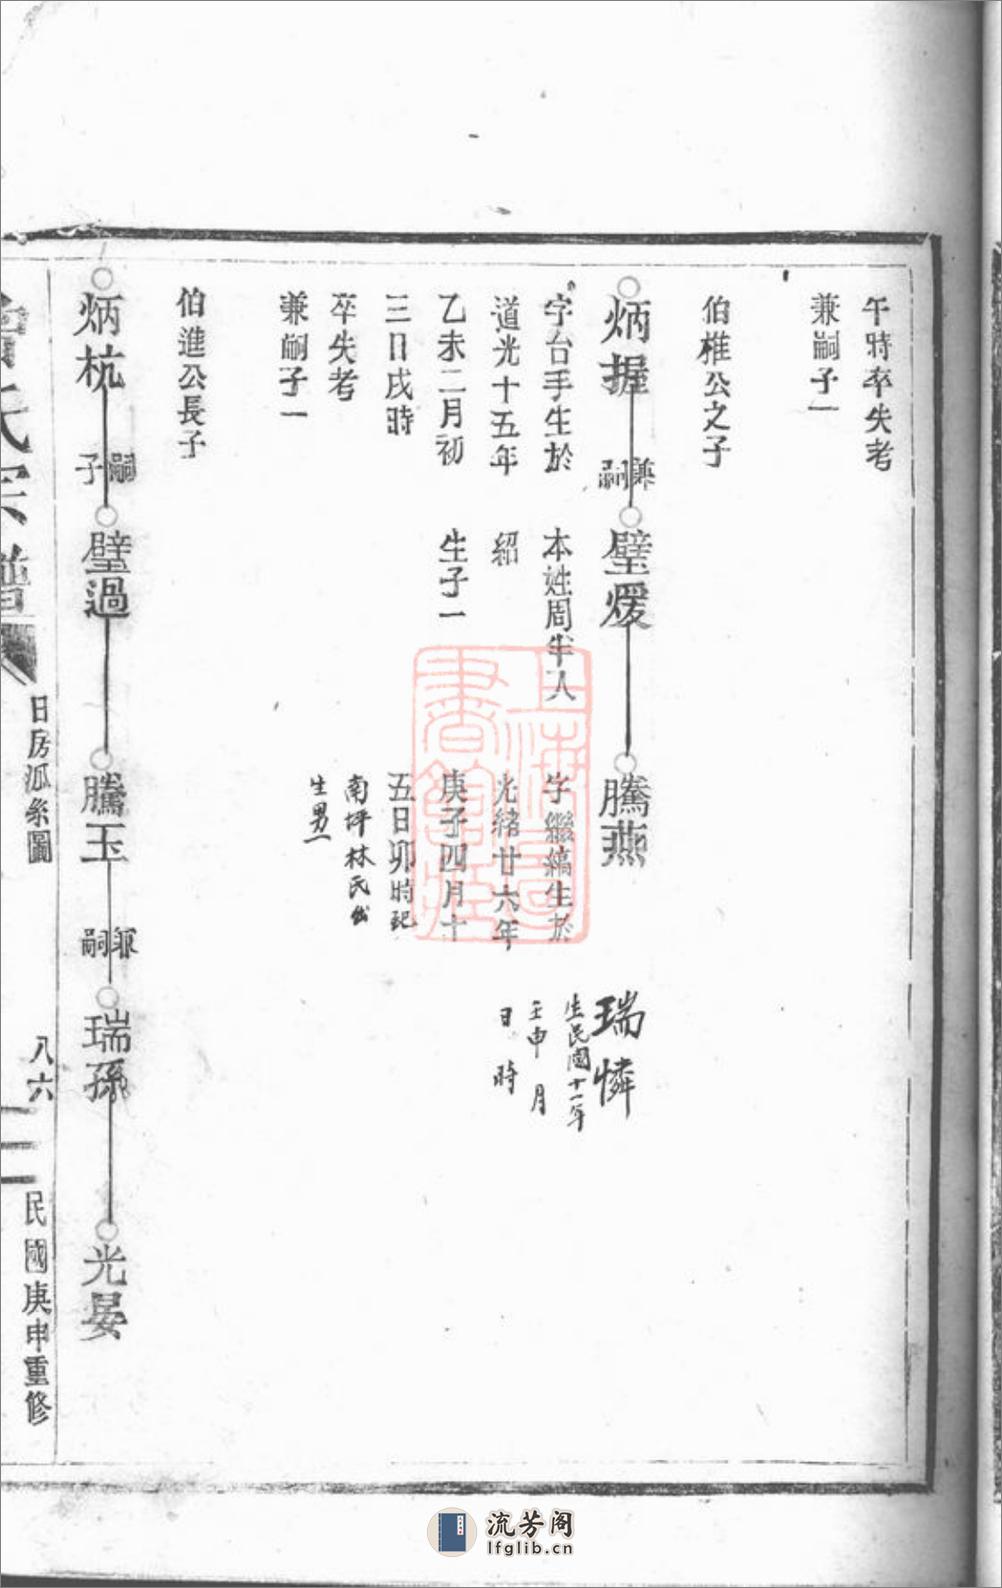 午時卒失考
兼嗣子一
伯椎公之子
炳握
兼嗣
璧煖
騰燕
瑞憐
字台手生於
道光十五年
乙未二月初
三日戌時
卒失考
兼嗣子一
本姓周半人
紹
生子一
字繼縞生於
光緒廿六年
庚子四月十
五日卯時配
南坪林氏出
生男一
生民國十一年
壬申 月
日 時
伯進公長子
炳杭
嗣子
璧過
騰玉
兼嗣
瑞孫
光晏
氏宗譜
日房派系圖
八六
民國庚申重修
上海圖書館藏
流芳阁
lfglib.cn